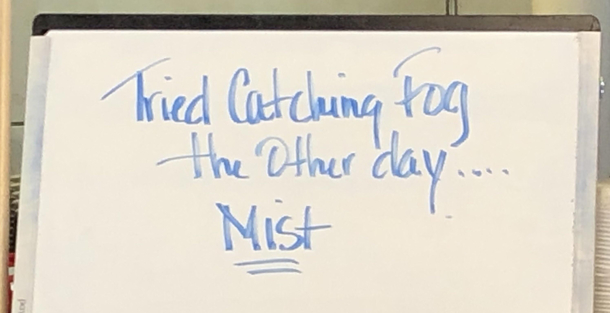 Tried Catching Fog
the Other day....
Mist